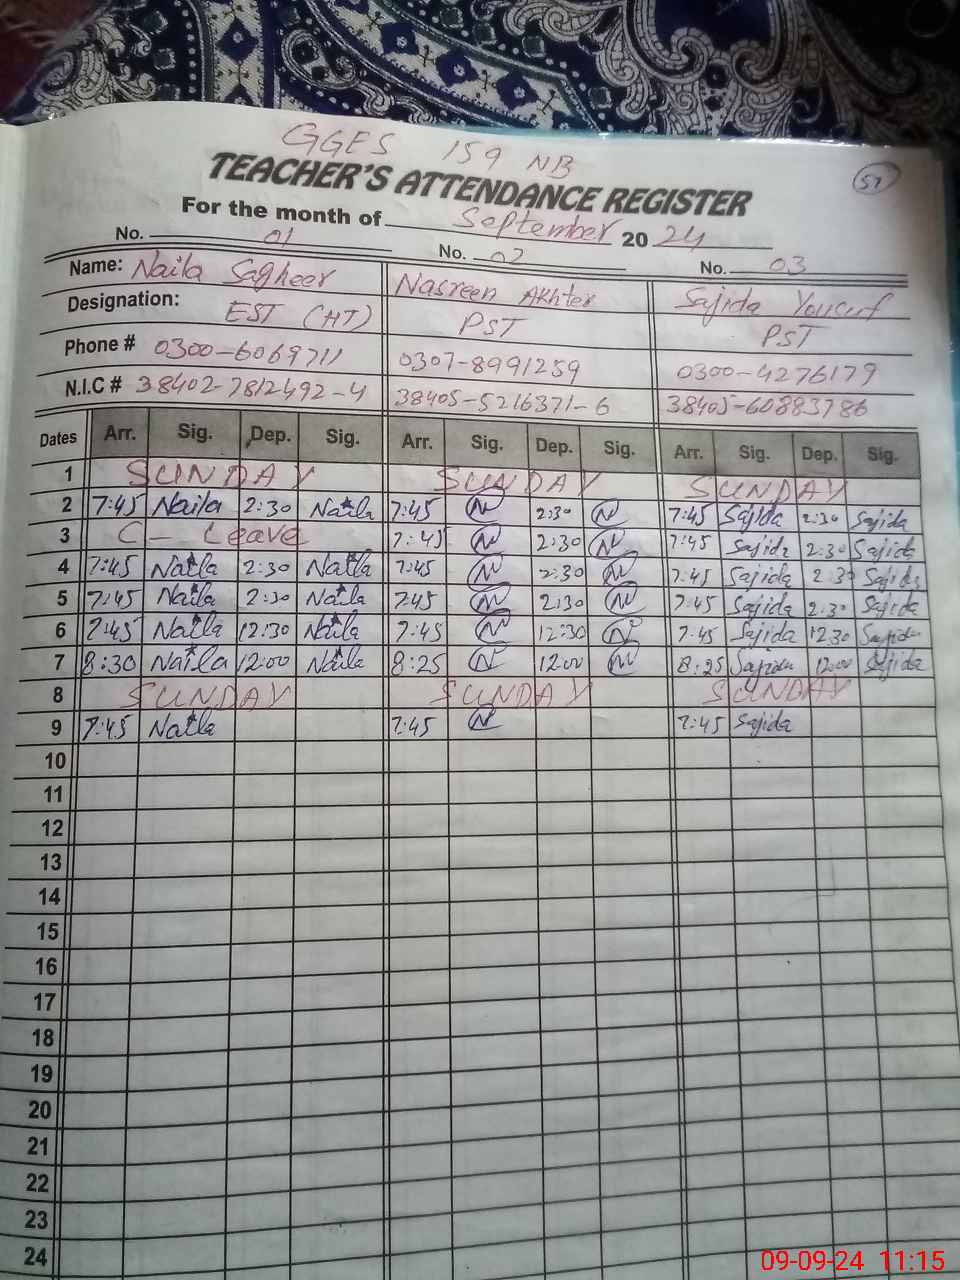 GGES 159 NB
57
TEACHER'S ATTENDANCE REGISTER
For the month of September 2024
No. 01 No. 02 No. 03
Name: Naila Sagheer Nasreen Akhter Sajida Yousuf
Designation: EST (HT) PST PST
Phone # 0300-6069711 0307-8991259 0300-4276179
N.I.C # 38402-7812492-4 38405-5216371-6 38405-60883786
Dates Arr. Sig. Dep. Sig. Arr. Sig. Dep. Sig. Arr. Sig. Dep. Sig.
1 SUNDAY SUNDAY SUNDAY
2 7:45 Naila 2:30 Naila 7:45 N 2:30 N 7:45 Sajida 2:30 Sajida
3 C- Leave 7:45 N 2:30 N 7:45 Sajida 2:30 Sajida
4 7:45 Naila 2:30 Naila 7:45 N 2:30 N 7:45 Sajida 2:30 Sajida
5 7:45 Naila 2:30 Naila 7:45 N 2:30 N 7:45 Sajida 2:30 Sajida
6 7:45 Naila 12:30 Naila 7:45 N 12:30 N 7:45 Sajida 12:30 Sajida
7 8:30 Naila 12:00 Naila 8:25 N 12:00 N 8:25 Sajida 12:00 Sajida
8 SUNDAY SUNDAY SUNDAY
9 7:45 Naila 7:45 N 7:45 Sajida
10
11
12
13
14
15
16
17
18
19
20
21
22
23
24
09-09-24 11:15